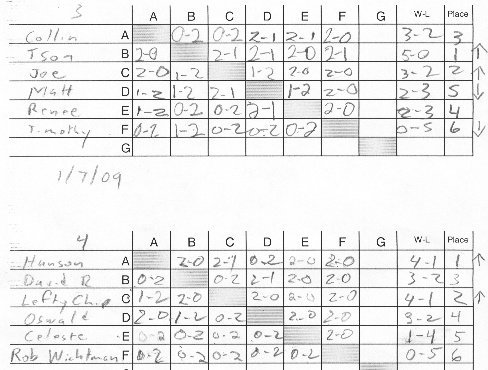 3
A B C D E F G W-L Place
Collin A 0-2 0-2 2-1 2-1 2-0 3-2 3
Tson B 2-0 2-1 2-1 2-0 2-1 5-0 1 ↑
Joe C 2-0 1-2 1-2 2-0 2-0 3-2 2 ↑
Matt D 1-2 1-2 2-1 1-2 2-0 2-3 5 ↓
Renee E 1-2 0-2 0-2 2-1 2-0 2-3 4
Timothy F 0-2 1-2 0-2 0-2 0-2 0-5 6 ↓
G
1/7/09
4
A B C D E F G W-L Place
Hanson A 2-0 2-1 0-2 2-0 2-0 4-1 1 ↑
David R B 0-2 0-2 2-1 2-0 2-0 3-2 3
Lefty Ch. C 1-2 2-0 2-0 2-0 2-0 4-1 2 ↑
Oswald D 2-0 1-2 0-2 2-0 2-0 3-2 4
Celeste E 0-2 0-2 0-2 0-2 2-0 1-4 5
Rob F 0-2 0-2 0-2 0-2 0-2 0-5 6